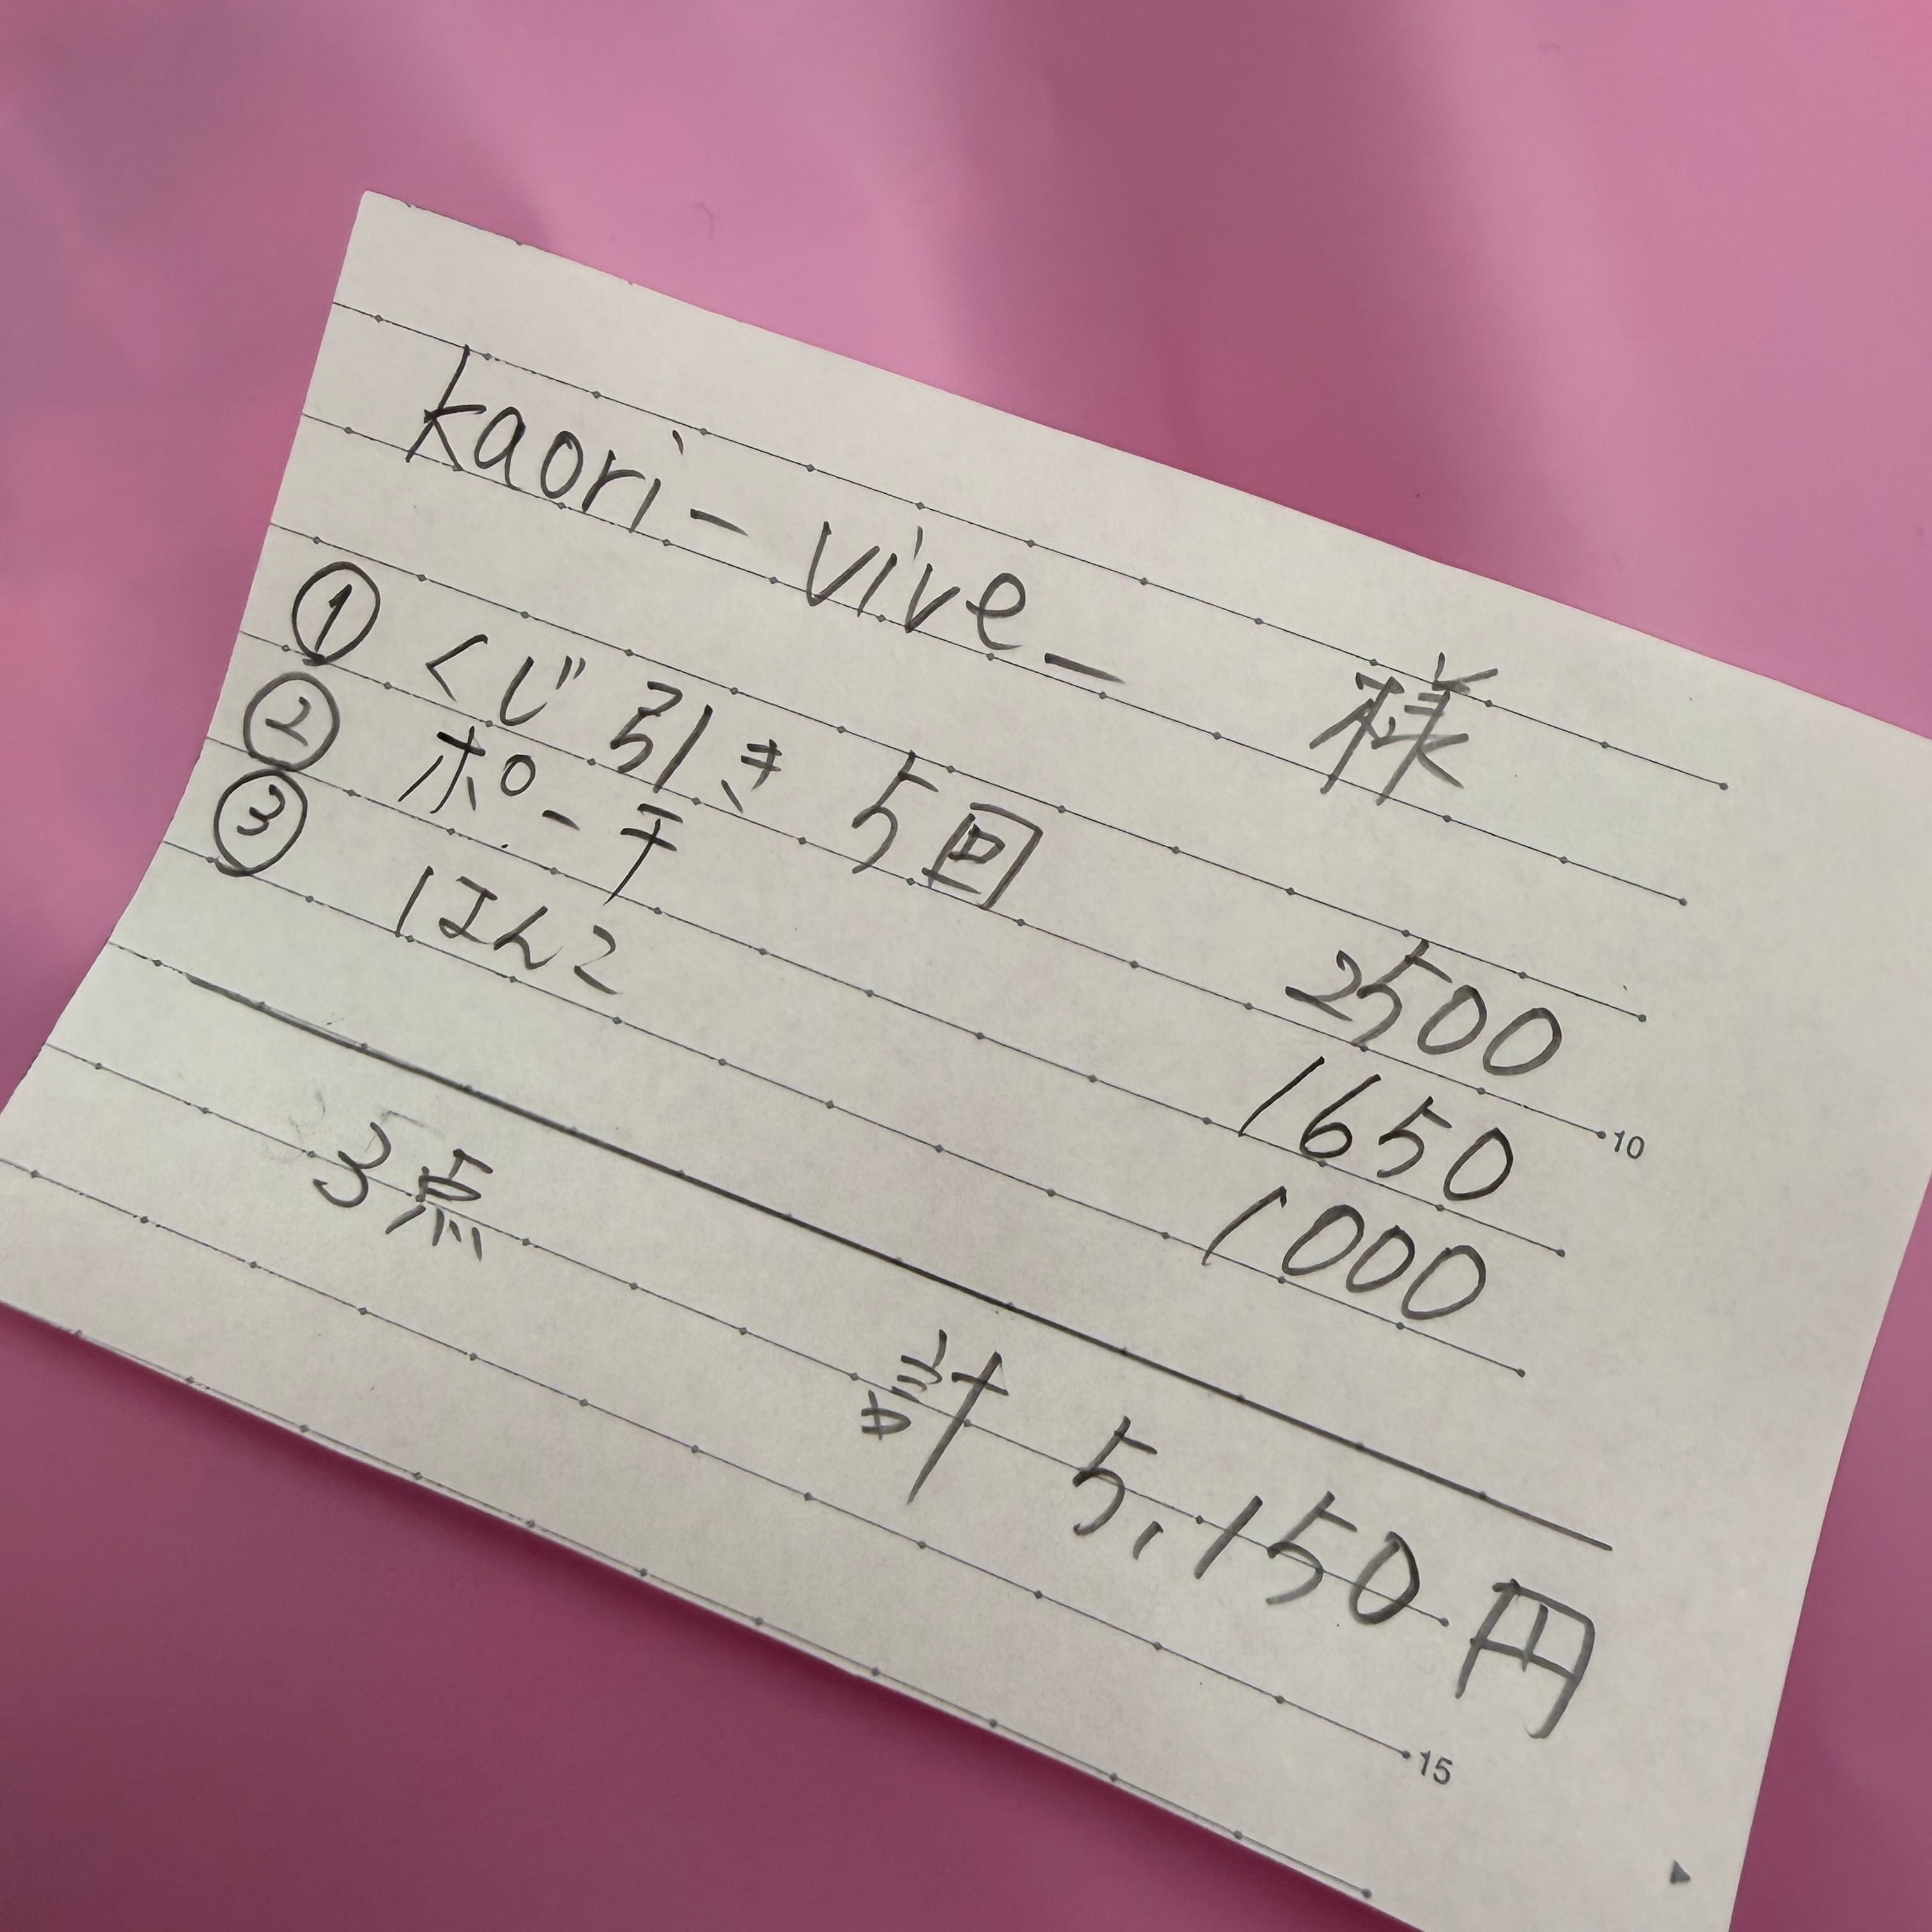 kaori-vive_ 様
① くじ引き 5回 2500
② ポーチ 1650
③ はんこ 1000
10
3点
計 5,150円
15